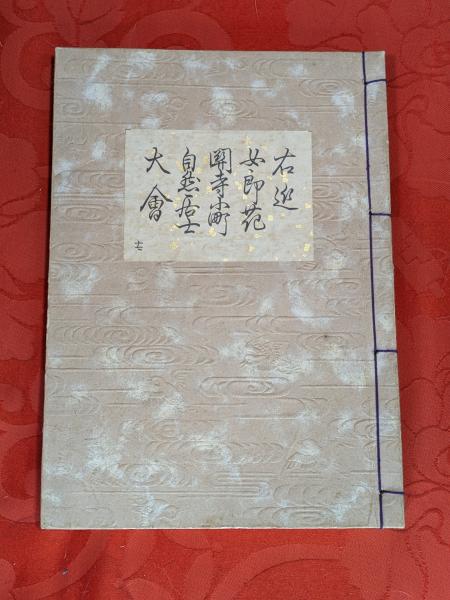 右近
女郎花
關寺小町
自然居士
大會
十七